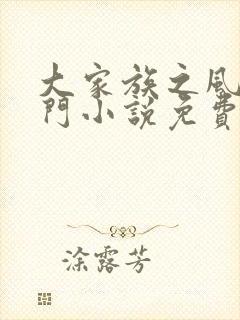 大家族之風
門小說免費
涂露芳